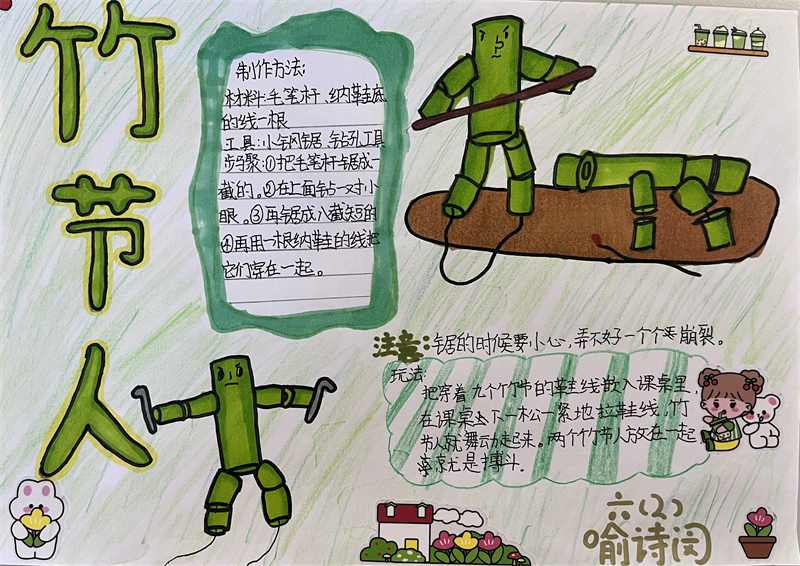 竹节人
制作方法:
材料:毛笔杆、纳鞋底
的线一根
工具:小钢锯、钻孔工具
步骤:①把毛笔杆锯成一
截的。②在上面钻一对小
眼。③再锯成八截短的
④再用一根纳鞋的线把
它们穿在一起。
注意:锯的时候要小心,弄不好一个个崩裂。
玩法:
把穿着九个竹节的鞋线嵌入课桌里,
在课桌下一松一紧地拉鞋线,竹
节人就舞动起来。两个竹节人放在一起
就是搏斗.
六(2)
喻诗闵